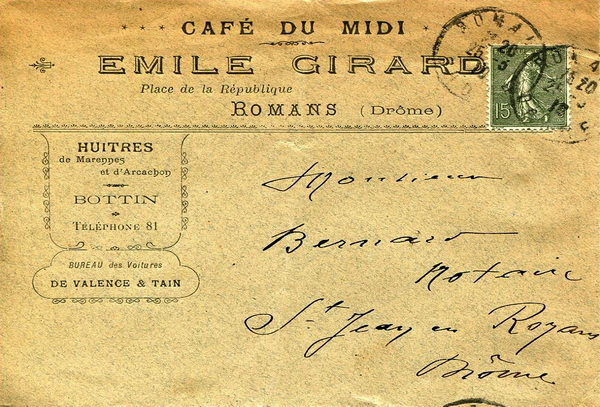 CAFÉ DU MIDI
EMILE GIRARD
Place de la République
ROMANS (Drôme)
HUITRES
de Marennes
et d'Arcachon
BOTTIN
TÉLÉPHONE 81
BUREAU des Voitures
DE VALENCE & TAIN
15
Monsieur
Bernard
Notaire
St Jean en Royans
Drôme